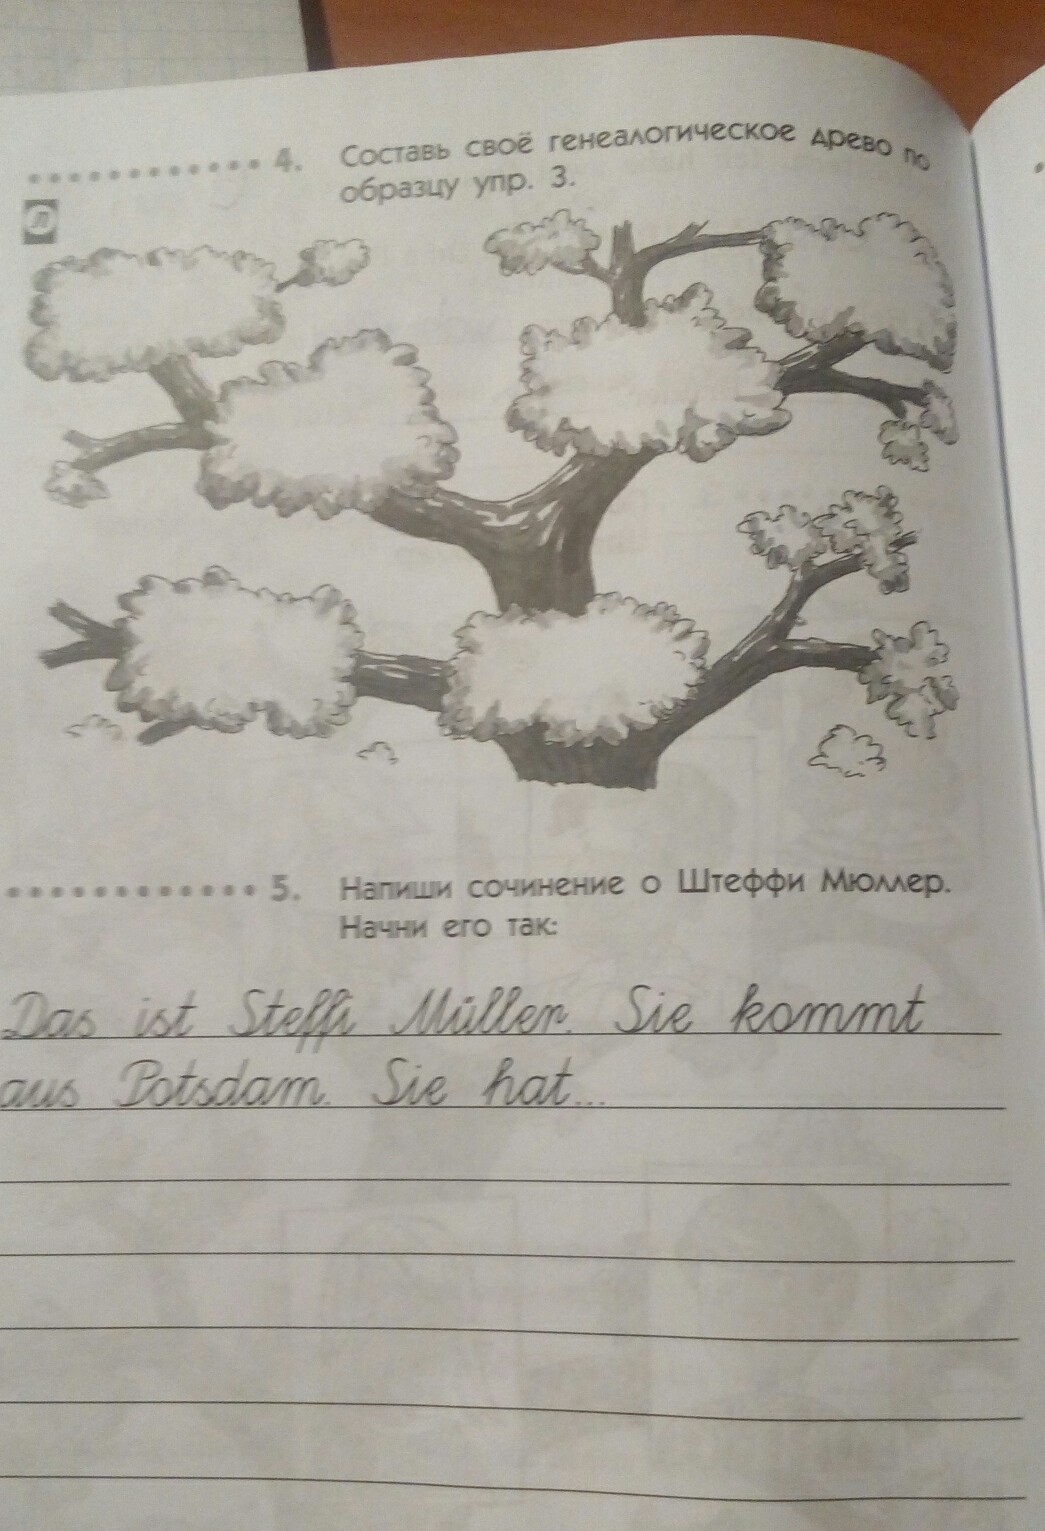 4. Составь своё генеалогическое древо по
образцу упр. 3.
Л
5. Напиши сочинение о Штеффи Мюллер.
Начни его так:
Das ist Steffi Müller. Sie kommt
aus Potsdam. Sie hat...